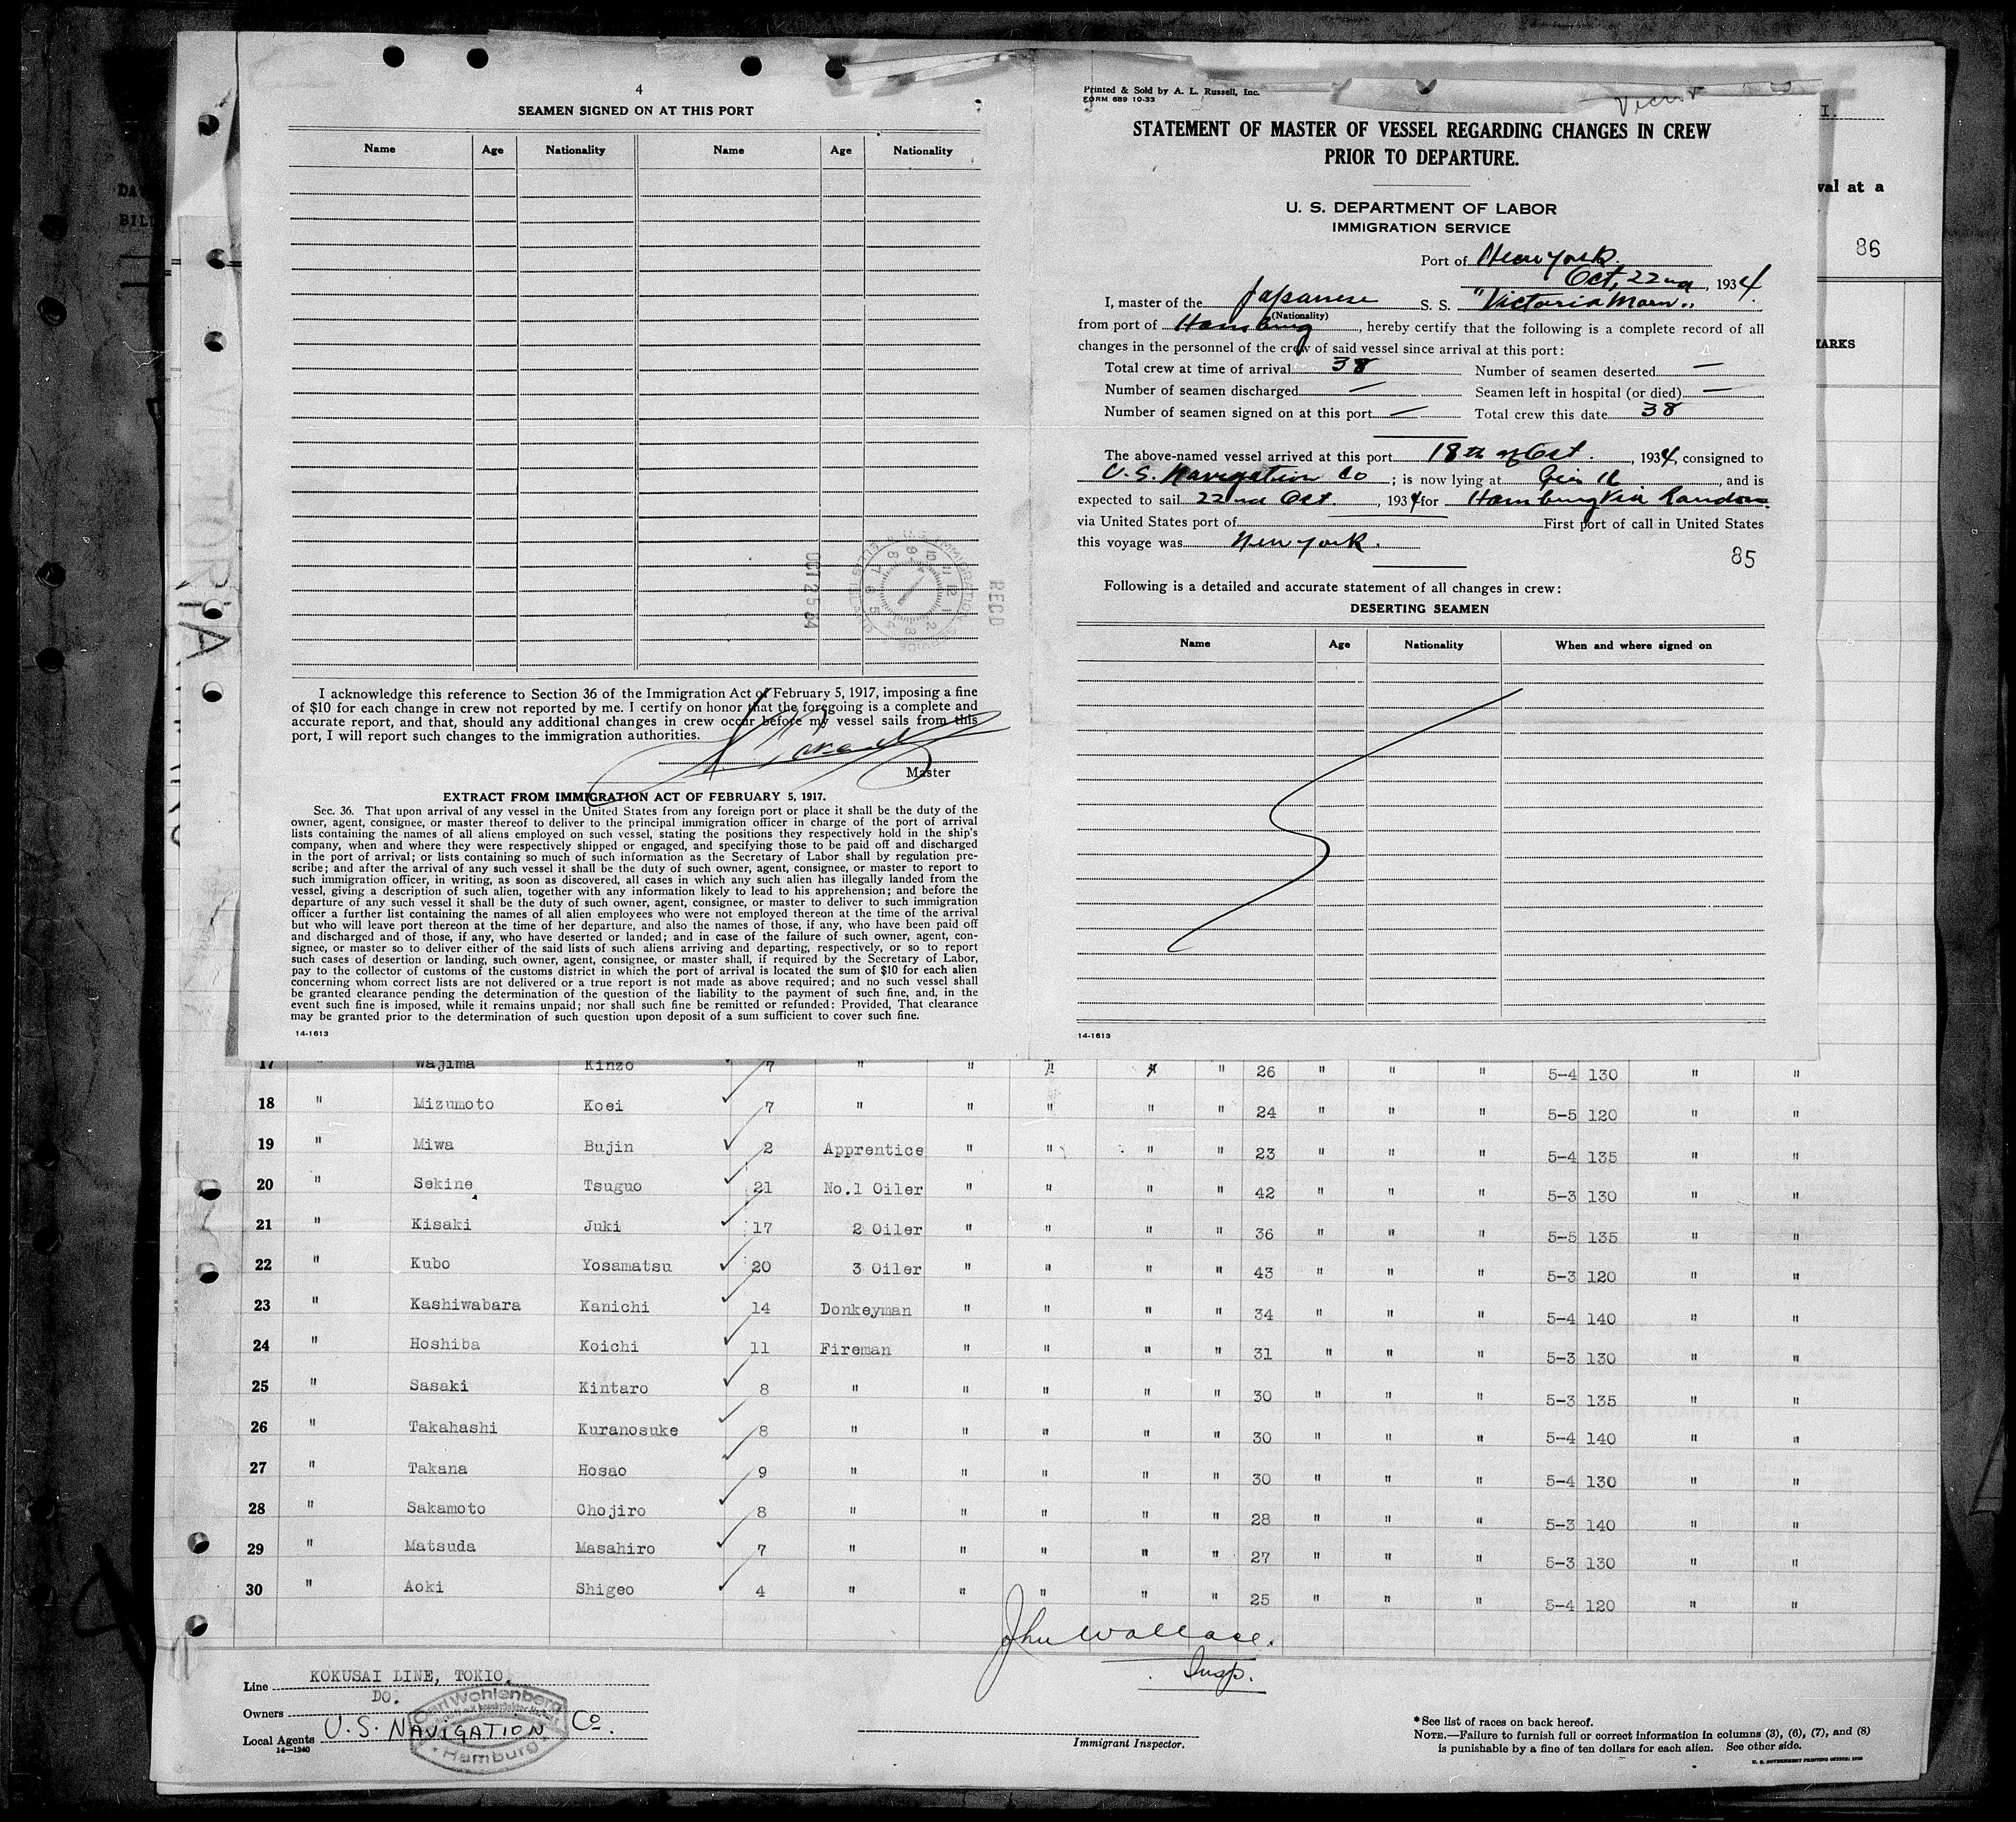 4
SEAMEN SIGNED ON AT THIS PORT
Name Age Nationality Name Age Nationality
OCT 25 34
RECD
I acknowledge this reference to Section 36 of the Immigration Act of February 5, 1917, imposing a fine
of $10 for each change in crew not reported by me. I certify on honor that the foregoing is a complete and
accurate report, and that, should any additional changes in crew occur before my vessel sails from this
port, I will report such changes to the immigration authorities.
Master
EXTRACT FROM IMMIGRATION ACT OF FEBRUARY 5, 1917.
Sec. 36. That upon arrival of any vessel in the United States from any foreign port or place it shall be the duty of the
owner, agent, consignee, or master thereof to deliver to the principal immigration officer in charge of the port of arrival
lists containing the names of all aliens employed on such vessel, stating the positions they respectively hold in the ship's
company, when and where they were respectively shipped or engaged, and specifying those to be paid off and discharged
in the port of arrival; or lists containing so much of such information as the Secretary of Labor shall by regulation pre-
scribe; and after the arrival of any such vessel it shall be the duty of such owner, agent, consignee, or master to report to
such immigration officer, in writing, as soon as discovered, all cases in which any such alien has illegally landed from the
vessel, giving a description of such alien, together with any information likely to lead to his apprehension; and before the
departure of any such vessel it shall be the duty of such owner, agent, consignee, or master to deliver to such immigration
officer a further list containing the names of all alien employees who were not employed thereon at the time of the arrival
but who will leave port thereon at the time of her departure, and also the names of those, if any, who have been paid off
and discharged and of those, if any, who have deserted or landed; and in case of the failure of such owner, agent, con-
signee, or master so to deliver either of the said lists of such aliens arriving and departing, respectively, or so to report
such cases of desertion or landing, such owner, agent, consignee, or master shall, if required by the Secretary of Labor,
pay to the collector of customs of the customs district in which the port of arrival is located the sum of $10 for each alien
concerning whom correct lists are not delivered or a true report is not made as above required; and no such vessel shall
be granted clearance pending the determination of the question of the liability to the payment of such fine, and, in the
event such fine is imposed, while it remains unpaid; nor shall such fine be remitted or refunded: Provided, That clearance
may be granted prior to the determination of such question upon deposit of a sum sufficient to cover such fine.
14-1613
Printed & Sold by A. L. Russell, Inc.
FORM 689 10-33
STATEMENT OF MASTER OF VESSEL REGARDING CHANGES IN CREW
PRIOR TO DEPARTURE.
U. S. DEPARTMENT OF LABOR
IMMIGRATION SERVICE
Port of New York.
Oct, 22nd, 1934.
I, master of the Japanese S. S. "Victoria Maru"
(Nationality)
from port of Hamburg, hereby certify that the following is a complete record of all
changes in the personnel of the crew of said vessel since arrival at this port:
Total crew at time of arrival 38 Number of seamen deserted —
Number of seamen discharged — Seamen left in hospital (or died) —
Number of seamen signed on at this port — Total crew this date 38
The above-named vessel arrived at this port 18th of Oct., 1934, consigned to
U.S. Navigation Co; is now lying at Pier 16, and is
expected to sail 22nd Oct., 1934 for Hamburg Via Randon.
via United States port of First port of call in United States
this voyage was New York.
85
Following is a detailed and accurate statement of all changes in crew:
DESERTING SEAMEN
Name Age Nationality When and where signed on
14-1613
val at a
86
MARKS
17 " Wajima Kinzo 7 " " " " " 26 " " " 5-4 130 " "
18 " Mizumoto Koei 7 " " " " " 24 " " " 5-5 120 " "
19 " Miwa Bujin 2 Apprentice " " " " 23 " " " 5-4 135 " "
20 " Sekine Tsuguo 21 No.1 Oiler " " " " 42 " " " 5-3 130 " "
21 " Kisaki Juki 17 2 Oiler " " " " 36 " " " 5-5 135 " "
22 " Kubo Yosamatsu 20 3 Oiler " " " " 43 " " " 5-3 120 " "
23 " Kashiwabara Kanichi 14 Donkeyman " " " " 34 " " " 5-4 140 " "
24 " Hoshiba Koichi 11 Fireman " " " " 31 " " " 5-3 130 " "
25 " Sasaki Kintaro 8 " " " " " 30 " " " 5-3 135 " "
26 " Takahashi Kuranosuke 8 " " " " " 30 " " " 5-4 140 " "
27 " Takana Hosao 9 " " " " " 30 " " " 5-4 130 " "
28 " Sakamoto Chojiro 8 " " " " " 28 " " " 5-3 140 " "
29 " Matsuda Masahiro 7 " " " " " 27 " " " 5-3 130 " "
30 " Aoki Shigeo 4 " " " " " 25 " " " 5-4 120 " "
John Wallace.
Insp.
Line KOKUSAI LINE, TOKIO.
Owners DO.
Local Agents U.S. NAVIGATION Co.
14—1240
Carl Wohlenberg
Hamburg
Immigrant Inspector.
*See list of races on back hereof.
NOTE.—Failure to furnish full or correct information in columns (3), (6), (7), and (8)
is punishable by a fine of ten dollars for each alien. See other side.